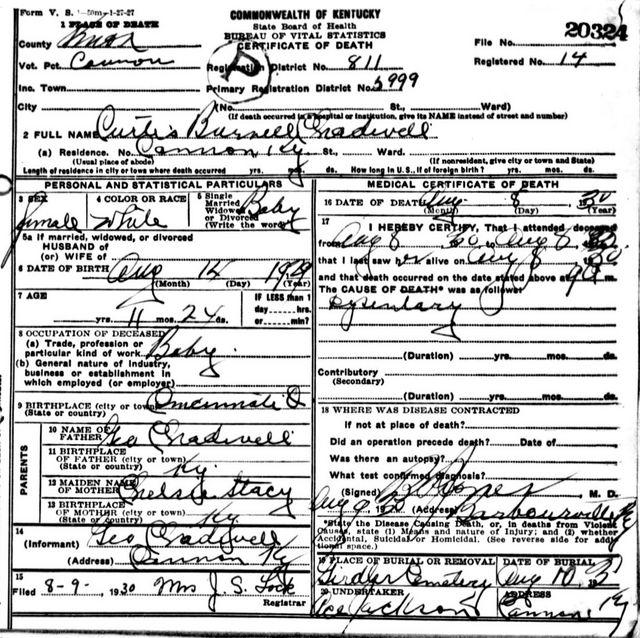 Form V. S. 1-50m-1-27-27
COMMONWEALTH OF KENTUCKY
State Board of Health
BUREAU OF VITAL STATISTICS
CERTIFICATE OF DEATH
20324
1 PLACE OF DEATH
County Knox
File No.
Vot. Pct. Cannon
Registration District No. 811
Registered No. 14
Inc. Town
Primary Registration District No. 5999
City (No. St., Ward)
(If death occurred in a hospital or institution, give its NAME instead of street and number)
2 FULL NAME Curtis Burnell Chadwell
(a) Residence. No. Cannon Ky. St., Ward.
(Usual place of abode) (If nonresident, give city or town and State)
Length of residence in city or town where death occurred yrs. mos. ds. How long in U. S., if of foreign birth? yrs. mos. ds.
PERSONAL AND STATISTICAL PARTICULARS
3 SEX
female
4 COLOR OR RACE
white
5 Single
Married
Widowed
or Divorced
(Write the word)
Baby
5a If married, widowed, or divorced
HUSBAND of
(or) WIFE of
6 DATE OF BIRTH Aug 14 1929
(Month) (Day) (Year)
7 AGE
yrs. 11 mos. 24 ds.
IF LESS than 1
day hrs.
or min?
8 OCCUPATION OF DECEASED
(a) Trade, profession or
particular kind of work Baby
(b) General nature of industry,
business or establishment in
which employed (or employer)
9 BIRTHPLACE (city or town) Cincinnati O
(State or country)
PARENTS
10 NAME OF
FATHER Geo Chadwell
11 BIRTHPLACE
OF FATHER (city or town)
(State or country) Ky.
12 MAIDEN NAME
OF MOTHER Chelsie Stacy
13 BIRTHPLACE
OF MOTHER (city or town)
(State or country) Ky
14
(Informant) Geo Chadwell
(Address) Cannon Ky
15
Filed 8-9- 1930 Mrs J. S. Lock
Registrar
MEDICAL CERTIFICATE OF DEATH
16 DATE OF DEATH Aug 8 1930
(Month) (Day) (Year)
17
I HEREBY CERTIFY, That I attended deceased
from Aug 8 30, to Aug 8, 30
that I last saw her alive on Aug 8 30
and that death occurred on the date stated above at 9
The CAUSE OF DEATH* was as follows:
Dysentary
(Duration) yrs. mos. ds.
Contributory
(Secondary)
(Duration) yrs. mos. ds.
18 WHERE WAS DISEASE CONTRACTED
If not at place of death?
Did an operation precede death? Date of
Was there an autopsy?
What test confirmed diagnosis?
(Signed) M. D.
Aug 9 30 (Address) Barbourville Ky
*State the Disease Causing Death, or, in deaths from Violent
Causes, state (1) Means and nature of Injury; and (2) whether
Accidental, Suicidal or Homicidal. (See reverse side for addi-
tional space.)
19 PLACE OF BURIAL OR REMOVAL
Girdler Cemetery
DATE OF BURIAL
Aug 10
20 UNDERTAKER
Ace Jackson
ADDRESS
Cannon Ky